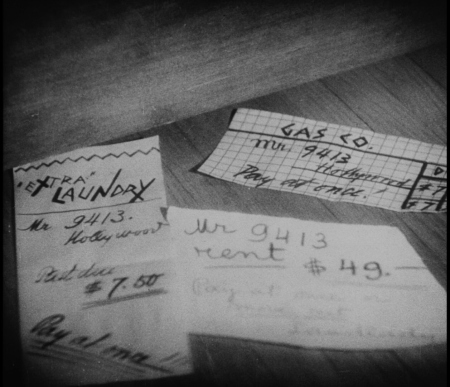 "EXTRA"
LAUNDRY
Mr. 9413.
Hollywood
Past due
$7.50
Pay at once!!
GAS CO.
Mr. 9413
Hollywood
Pay at once!
$7
$7
Mr 9413
rent $49.—
Pay at once or
move out